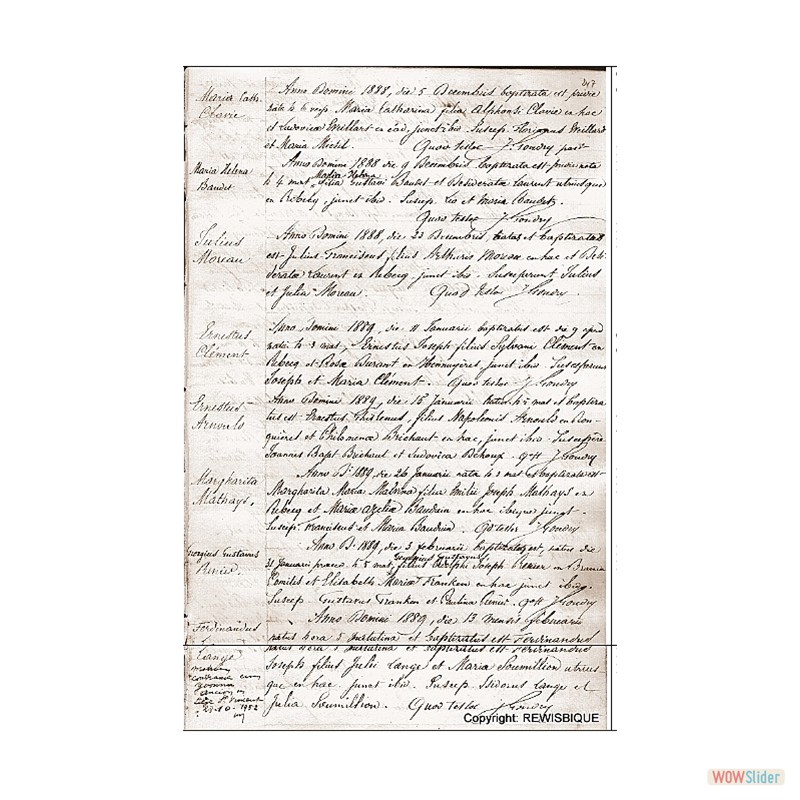 247
Maria Cath.
Clavie
Anno Domini 1888, die 5 Decembris baptizata est pridie
nata Maria Catharina filia Alphonsi Clavie en hac
et Ludovica Meillart en eâd, junct ibid. Suscep. Florianus Meillard
et Maria Michel. Quod testor J. Goudry
Maria Helena
Baudet
Anno Domine 1888 die 9 Decembris baptizata est pridie nata
Maria Helena
h 4 mat. filia Gustavi Baudet et Desiderata Laurent utriusque
en Rebecq, junct ibid. Suscep. Leo et Maria Baudet.
Quod testor J. Goudry
Julius
Moreau
Anno Domini 1888, die 23 Decembris, natus et baptizatus
est Julius Franciscus, filius Arthuris Moreau en hac et Desi
derata Laurent en Rebecq junct ibid. Susceperunt Julius
et Julia Moreau. Quod testor J. Goudry.
Ernestus
Clément
Anno Domine 1889, die 11 Januarii baptizatus est die 9
natus h 3 mat, Ernestus Joseph filius Sylvani Clément en
Rebecq et Rosa Durant en Hennuyères, junct ibid. Susceperunt
Joseph et Maria Clément. Quod testor J. Goudry
Ernestus
Arnouls
Anno Domine 1889, die 15 Januarii natus h 5 mat et baptiza
tus est Ernestus Ghislenus, filius Napoleonis Arnouls en
quières et Philomena Brichaut en hac, junct ibid. Suscep
Joannes Bapt Brichaut et Ludovica Dehoux. J. Goudry
Margharita
Mathays.
Anno D. 1889, die 26 Januarii nata h 2 mat et baptizata est
Margharita Maria Malvina filia Emilii Joseph Mathays en
Rebecq et Maria Baudrin en hac junct
Suscep. Franciscus et Maria Baudrin. Qd testor J. Goudry
Georgius Gustavus
Renier.
Anno D. 1889, die 3 februarii baptizatus est, natus die
Georgius Gustavus
31 Januarii h 5 mat, filius Joseph Renier en Braine
Comitis et Elisabeth Maria Franken en hac junct ibid.
Suscep. Gustavus Franken et Paulina Renier. J. Goudry
Ferdinandus
Anno Domini 1889, die 13 mensis februarii
natus hora 5 matutina et baptizatus est Ferdinandus
natus hora 5 matutina et baptizatus est Ferdinandus
Lange
Joseph filius Julii Lange et Maria Soumillion utrius
que en hac, junct ibid. Suscep. Isidorus Lange et
Julia Soumillion. Quod testor J. Goudry
28-10-1952
Copyright: REWISBIQUE
WOWSlider